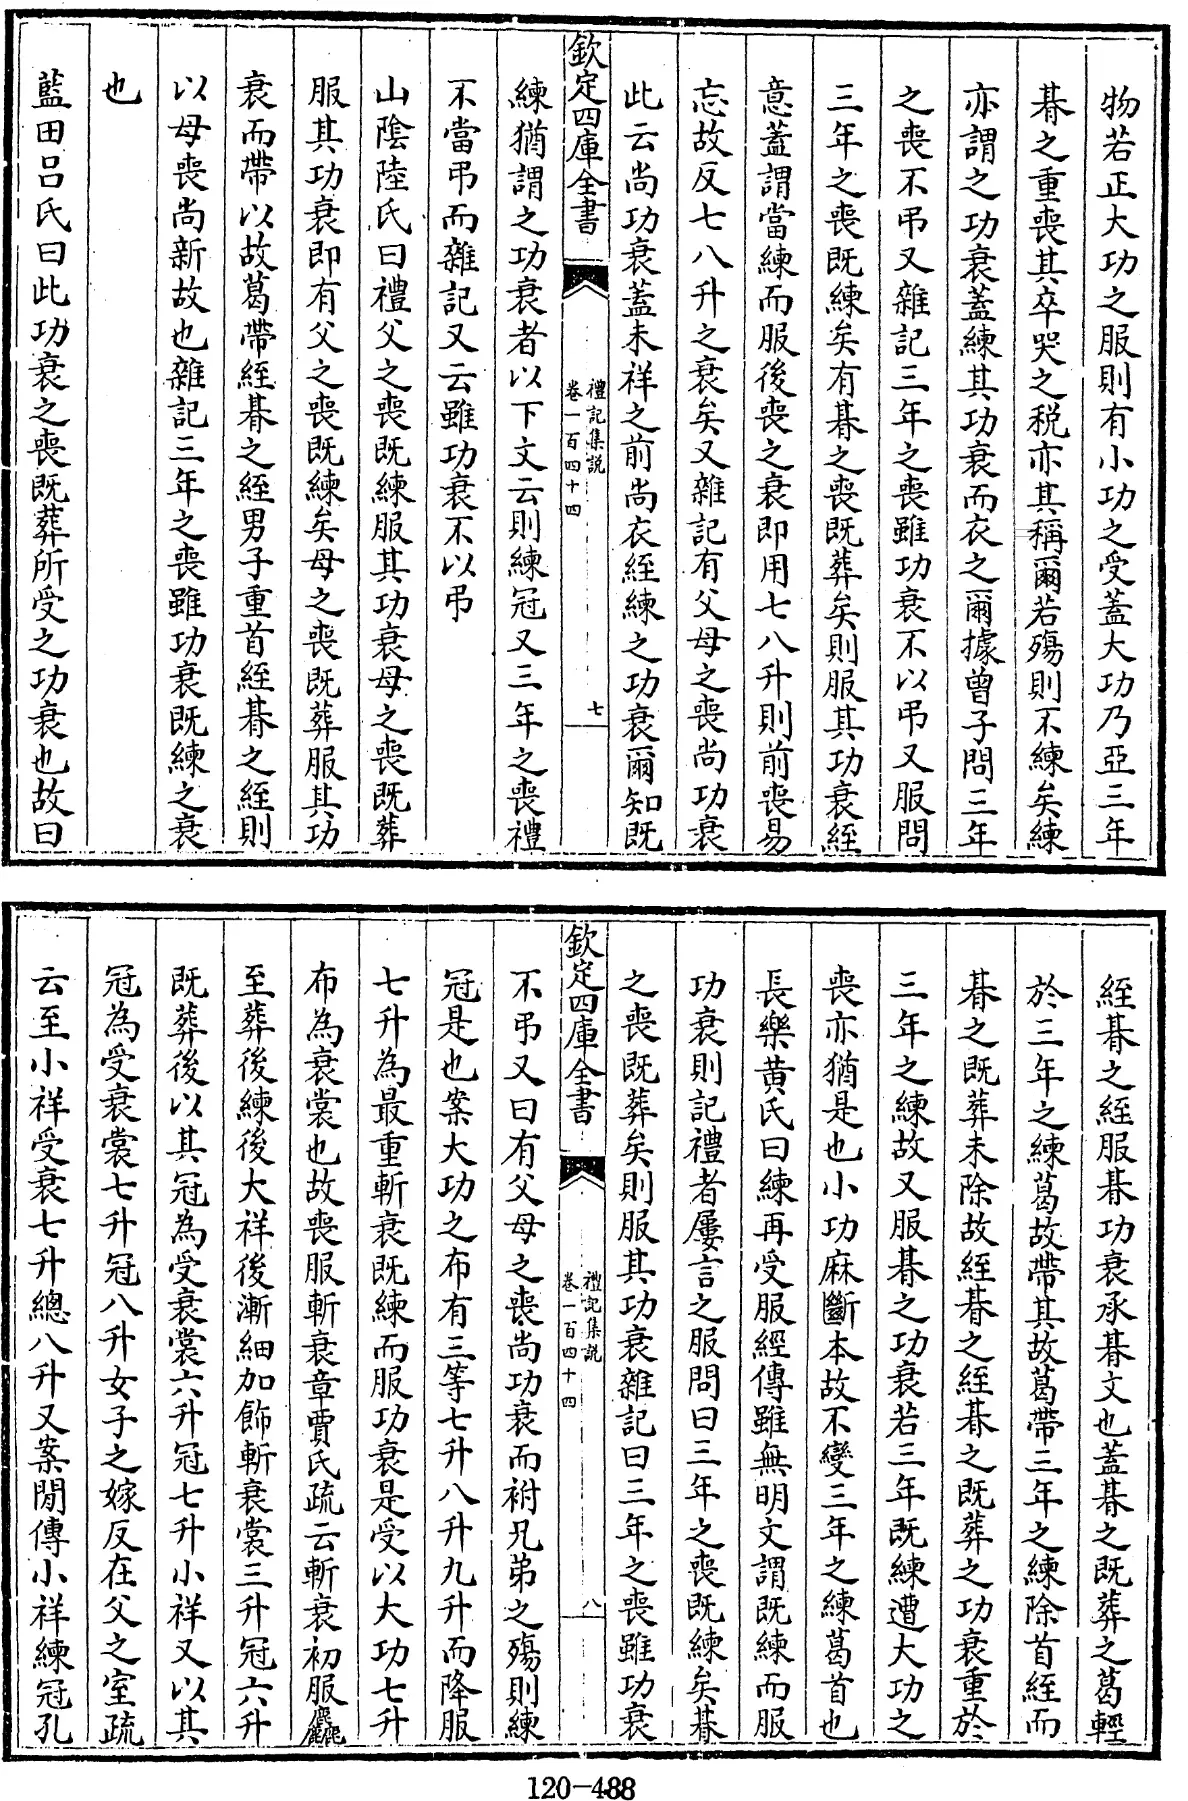 物若正大功之服則有小功之受蓋大功乃亞三年
朞之重喪其卒哭之税亦其稱爾若殤則不練矣練
亦謂之功衰蓋練其功衰而衣之爾據曽子問三年
之喪不弔又雜記三年之喪雖功衰不以弔又服問
三年之喪既練矣有朞之喪既葬矣則服其功衰絰
意蓋謂當練而服後喪之衰即用七八升則前喪易
忘故反七八升之衰矣又雜記有父母之喪尚功衰
此云尚功衰蓋未祥之前尚衣絰練之功衰爾知既
欽定四庫全書
禮記集説
卷一百四十四
七
練猶謂之功衰者以下文云則練冠又三年之喪禮
不當弔而雜記又云雖功衰不以弔
山陰陸氏曰禮父之喪既練服其功衰母之喪既葬
服其功衰即有父之喪既練矣母之喪既葬服其功
衰而帶以故葛帶絰朞之絰男子重首絰朞之絰則
以母喪尚新故也雜記三年之喪雖功衰既練之衰
也
藍田吕氏曰此功衰之喪既葬所受之功衰也故曰
絰朞之絰服朞功衰承朞文也蓋朞之既葬之葛輕
於三年之練葛故帶其故葛帶三年之練除首絰而
朞之既葬未除故絰朞之絰朞之既葬之功衰重於
三年之練故又服朞之功衰若三年既練遭大功之
喪亦猶是也小功麻斷本故不變三年之練葛首也
長樂黄氏曰練再受服經傳雖無明文謂既練而服
功衰則記禮者屢言之服問曰三年之喪既練矣朞
之喪既葬矣則服其功衰雜記曰三年之喪雖功衰
欽定四庫全書
禮記集説
卷一百四十四
八
不弔又曰有父母之喪尚功衰而祔兄弟之殤則練
冠是也案大功之布有三等七升八升九升而降服
七升為最重斬衰既練而服功衰是受以大功七升
布為衰裳也故喪服斬衰章賈氏疏云斬衰初服麤
至葬後練後大祥後漸細加飾斬衰裳三升冠六升
既葬後以其冠為受衰裳六升冠七升小祥又以其
冠為受衰裳七升冠八升女子之嫁反在父之室疏
云至小祥受衰七升總八升又案閒傳小祥練冠孔
120-488